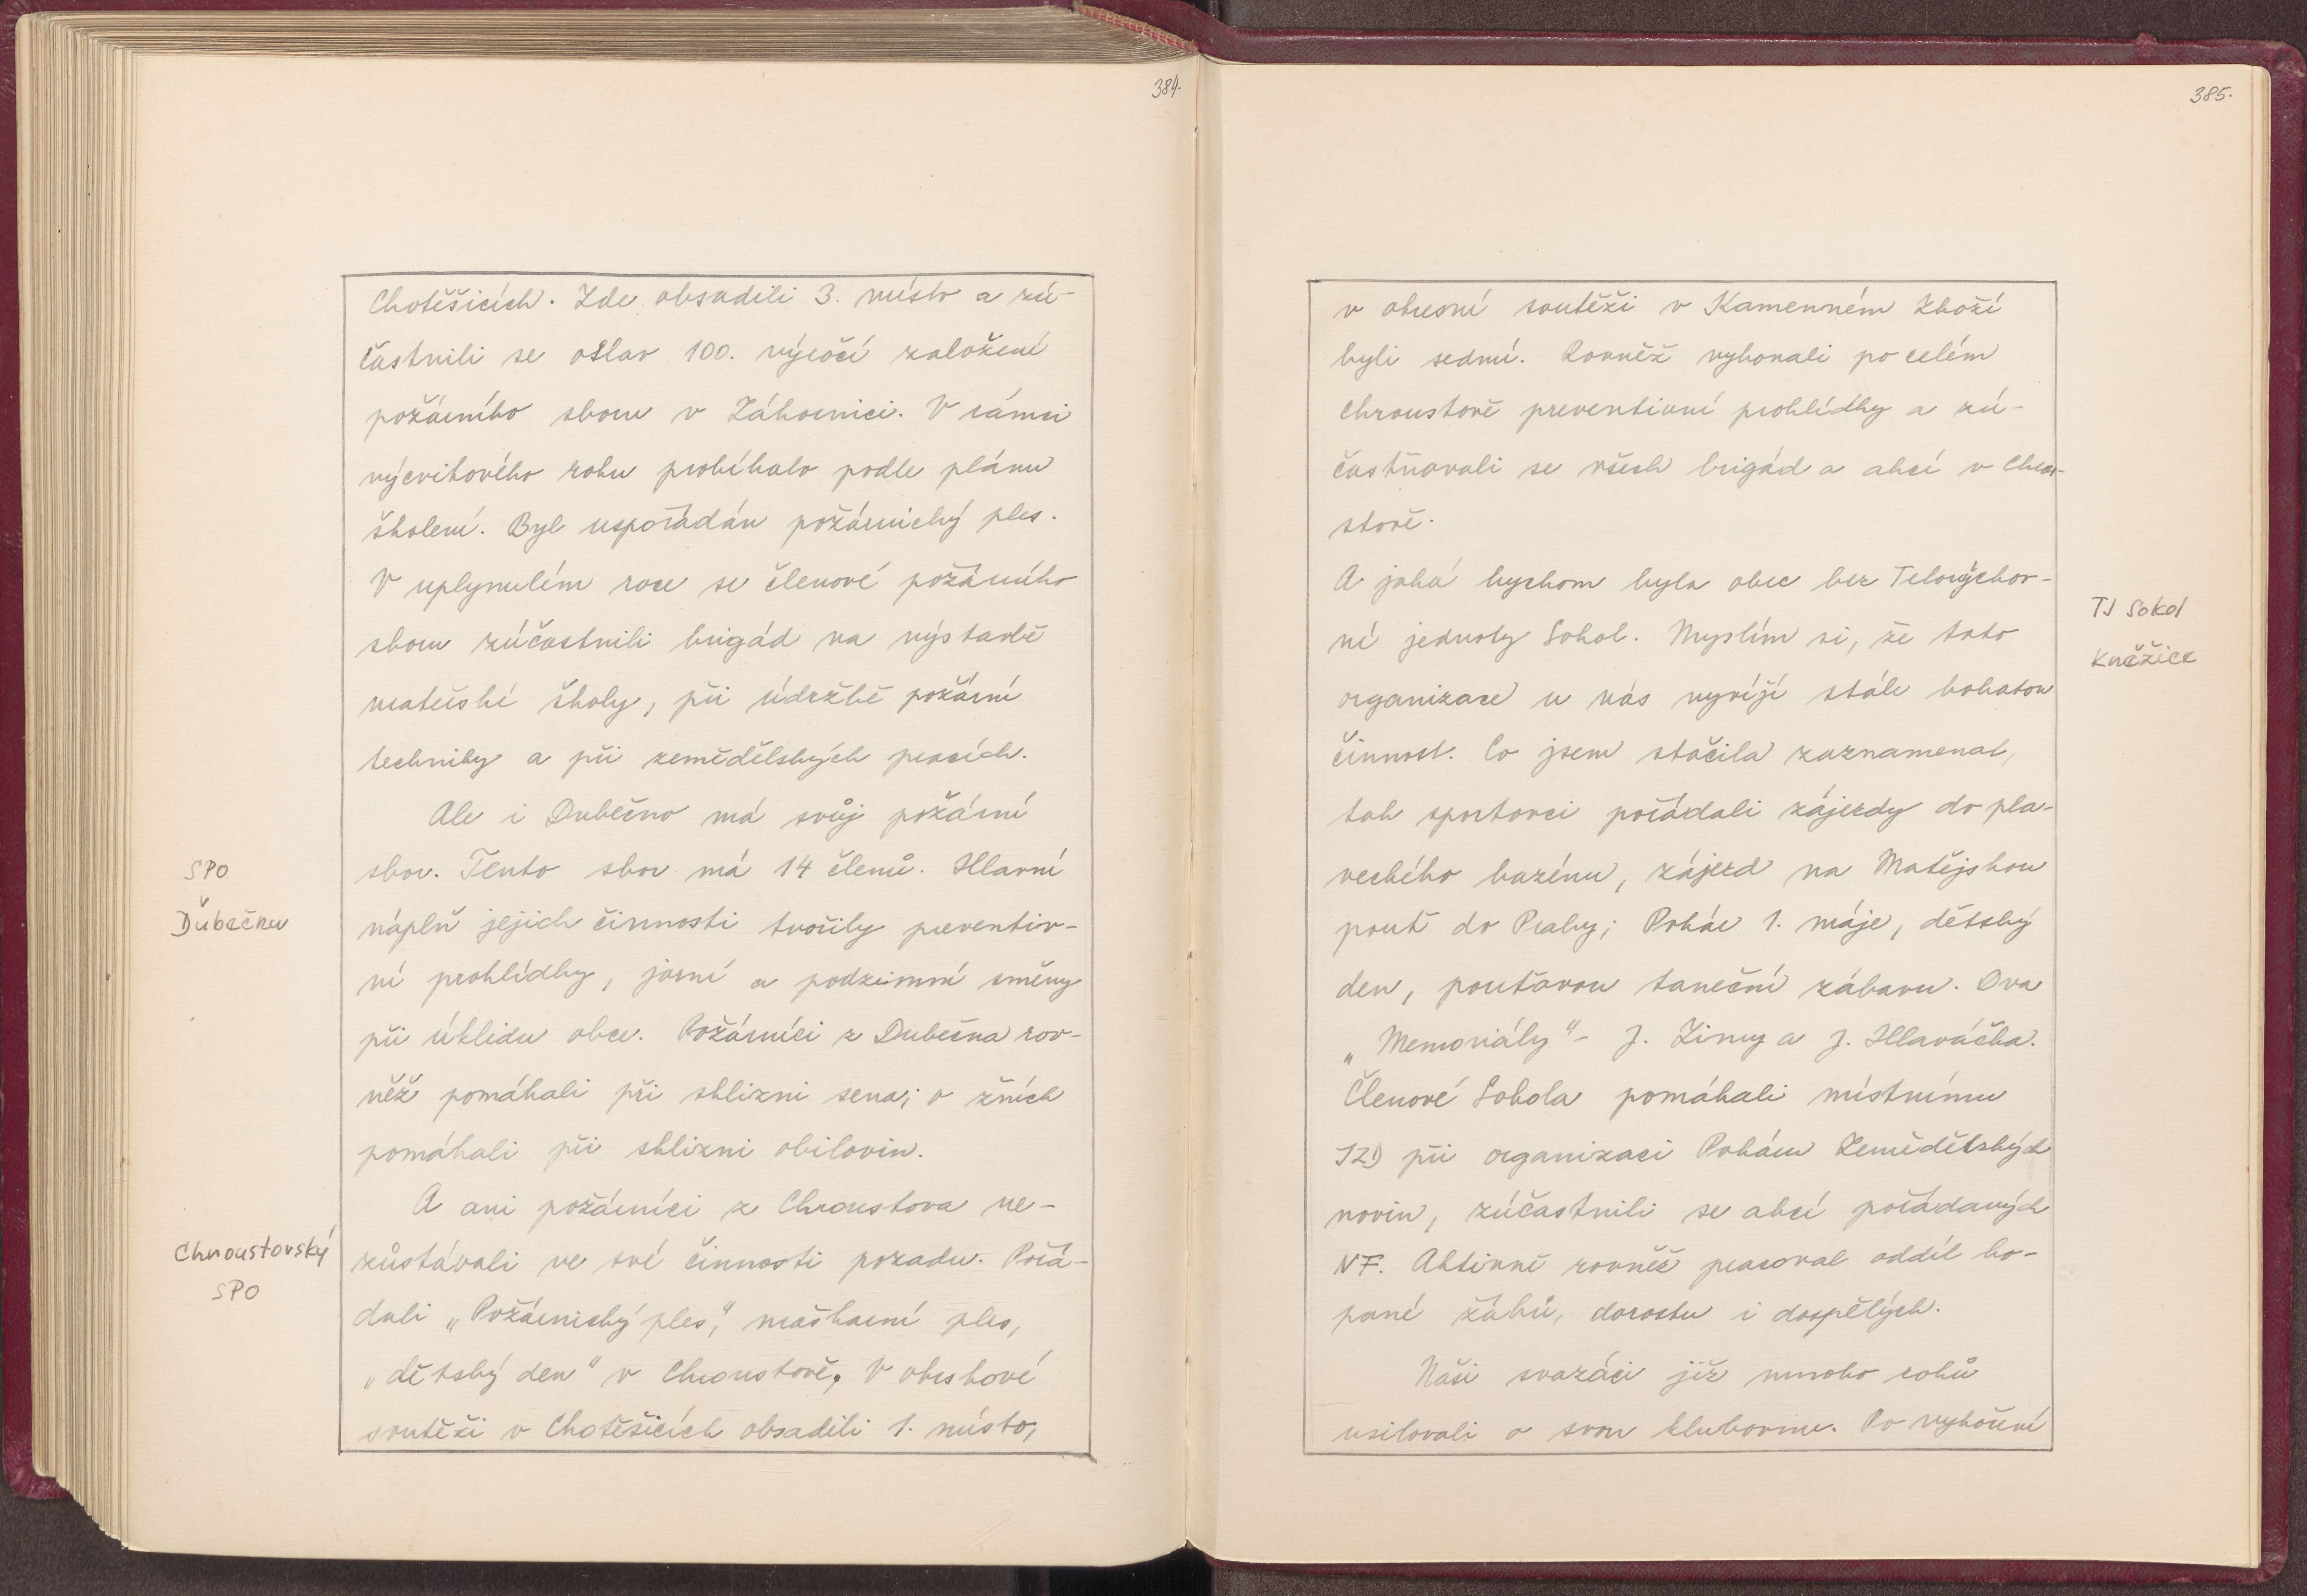 384.
Chotěšicích. Zde obsadili 3. místo a zú-
častnili se oslav 100. výročí založení
požárního sboru v Záhornici. V rámci
výcvikového roku probíhalo podle plánu
školení. Byl uspořádán požárnický ples.
V uplynulém roce se členové požárního
sboru zúčastnili brigád na výstavbě
mateřské školy, při údržbě požární
techniky a při zemědělských pracích.
Ale i Dubečno má svůj požární
SPO
Dubečno
sbor. Tento sbor má 14 členů. Hlavní
náplň jejich činnosti tvořily preventiv-
ní prohlídky, jarní a podzimní směny
při úklidu obce. Požárníci z Dubečna rov-
něž pomáhali při sklizni sena; o žních
pomáhali při sklizni obilovin.
A ani požárníci z Chroustova ne-
Chroustovský
SPO
zůstávali ve své činnosti pozadu. Pořá-
dali „Požárnický ples", maškarní ples,
„dětský den" v Chroustově. V okrskové
soutěži v Chotěšicích obsadili 1. místo,
385.
v okresní soutěži v Kamenném Zboží
byli sedmí. Rovněž vykonali po celém
Chroustově preventivní prohlídky a zú-
častňovali se všech brigád a akcí v Chrou-
stově.
A jaká bychom byla obec bez Tělovýchov-
TJ Sokol
Kněžice
ní jednoty Sokol. Myslím si, že tato
organizace u nás vyvíjí stále bohatou
činnost. Co jsem stačila zaznamenat,
tak sportovci pořádali zájezdy do pla-
veckého bazénu, zájezd na Matějskou
pouť do Prahy; Pohár 1. máje, dětský
den, pouťovou taneční zábavu. Dva
„Memoriály" - J. Zimy a J. Hlaváčka.
Členové Sokola pomáhali místnímu
JZD při organizaci Poháru Zemědělských
novin, zúčastnili se akcí pořádaných
NF. Aktivně rovněž pracoval oddíl ko-
pané žáků, dorostu i dospělých.
Naši svazáci již mnoho roků
usilovali o svou klubovnu. Po vyhoření